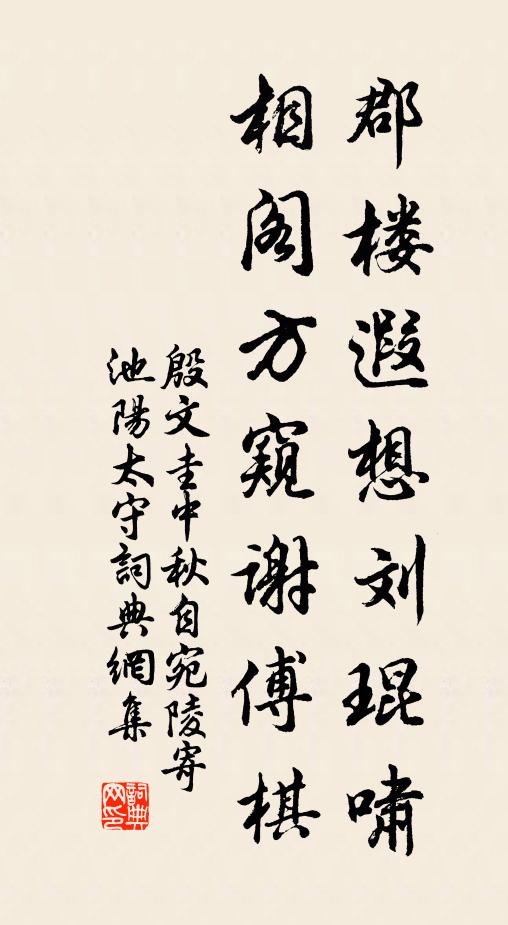 郡楼遐想刘琨啸
相阁方窥谢傅棋
殷文圭中秋自宛陵寄
池陽太守詞典網集
詞典网印